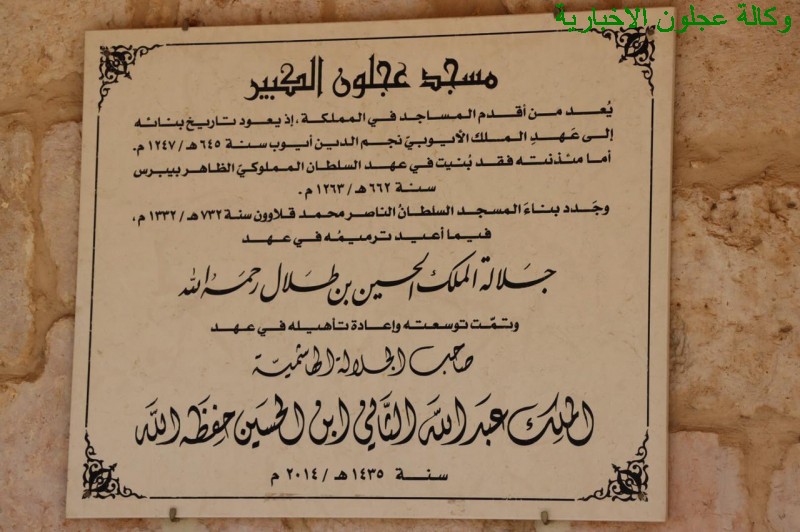 وكالة عجلون الاخبارية
مسجد عجلون الكبير
يُعد من أقدم المساجد في المملكة، إذ يعود تاريخ بنائه
إلى عَهدِ الملك الأيوبيّ نجم الدين أيوب سنة ٦٤٥ هـ/ ١٢٤٧ م.
أما مئذنته فقد بُنيت في عهد السلطان المملوكيّ الظاهر بيبرس
سنة ٦٦٢ هـ/ ١٢٦٣ م.
وجَدد بناءَ المسجد السلطانُ الناصر محمد قلاوون سنة ٧٣٢ هـ/ ١٣٣٢ م،
فيما أعيد ترميمُه في عهد
جلالة الملك الحسين بن طلال رحمه الله
وتمّت توسعته وإعادة تأهيله في عهد
صاحب الجلالة الهاشميّة
الملك عبد الله الثاني ابن الحسين حفظه الله
سنة ١٤٣٥ هـ/ ٢٠١٤ م